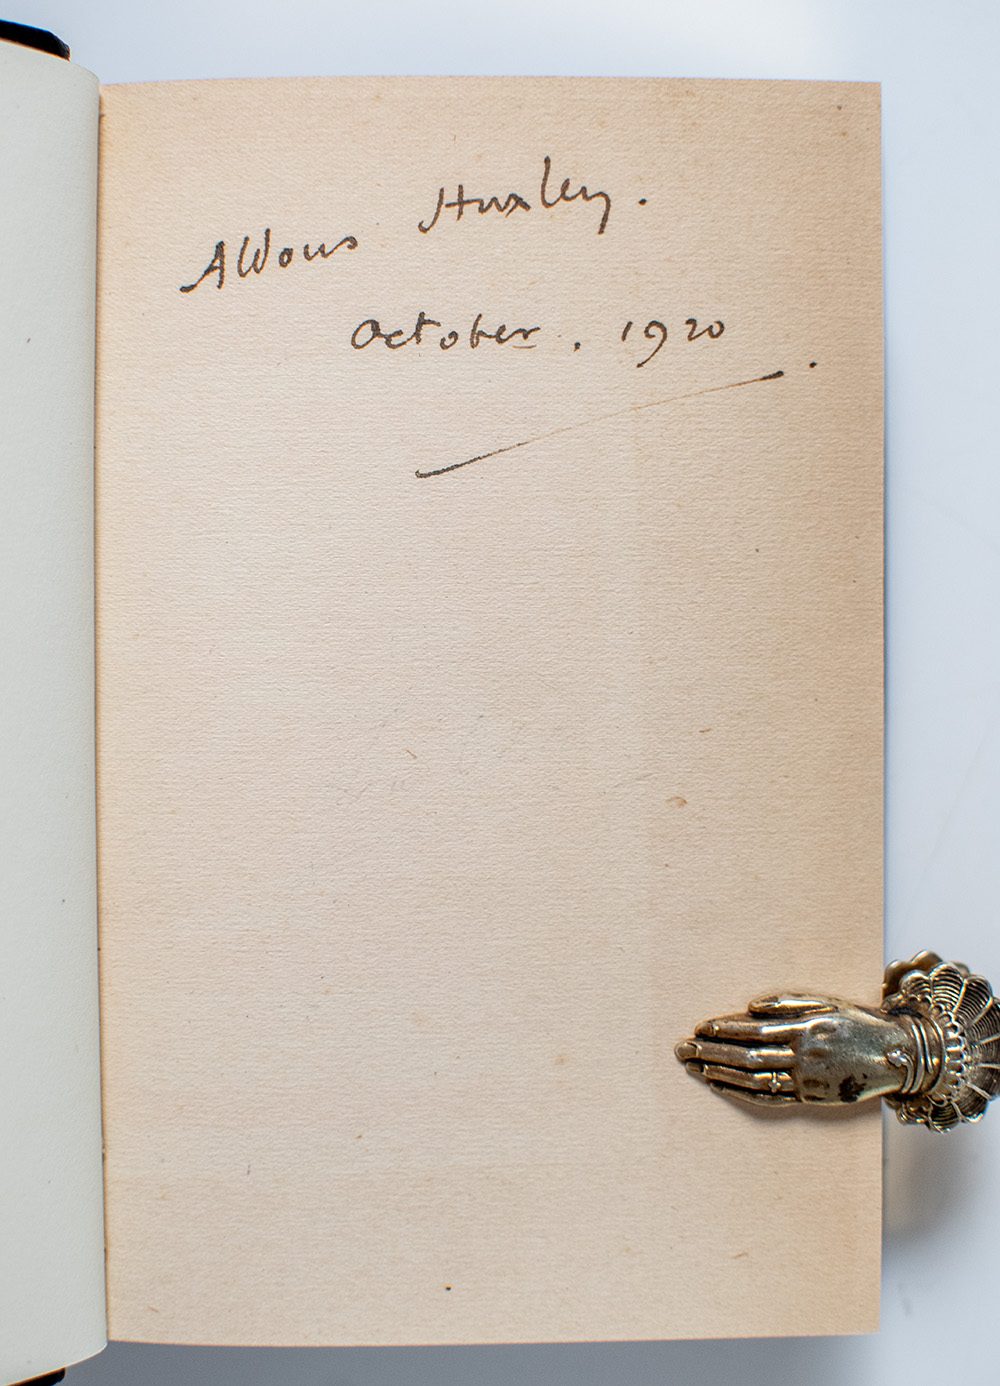 Aldous Huxley.
October. 1920.